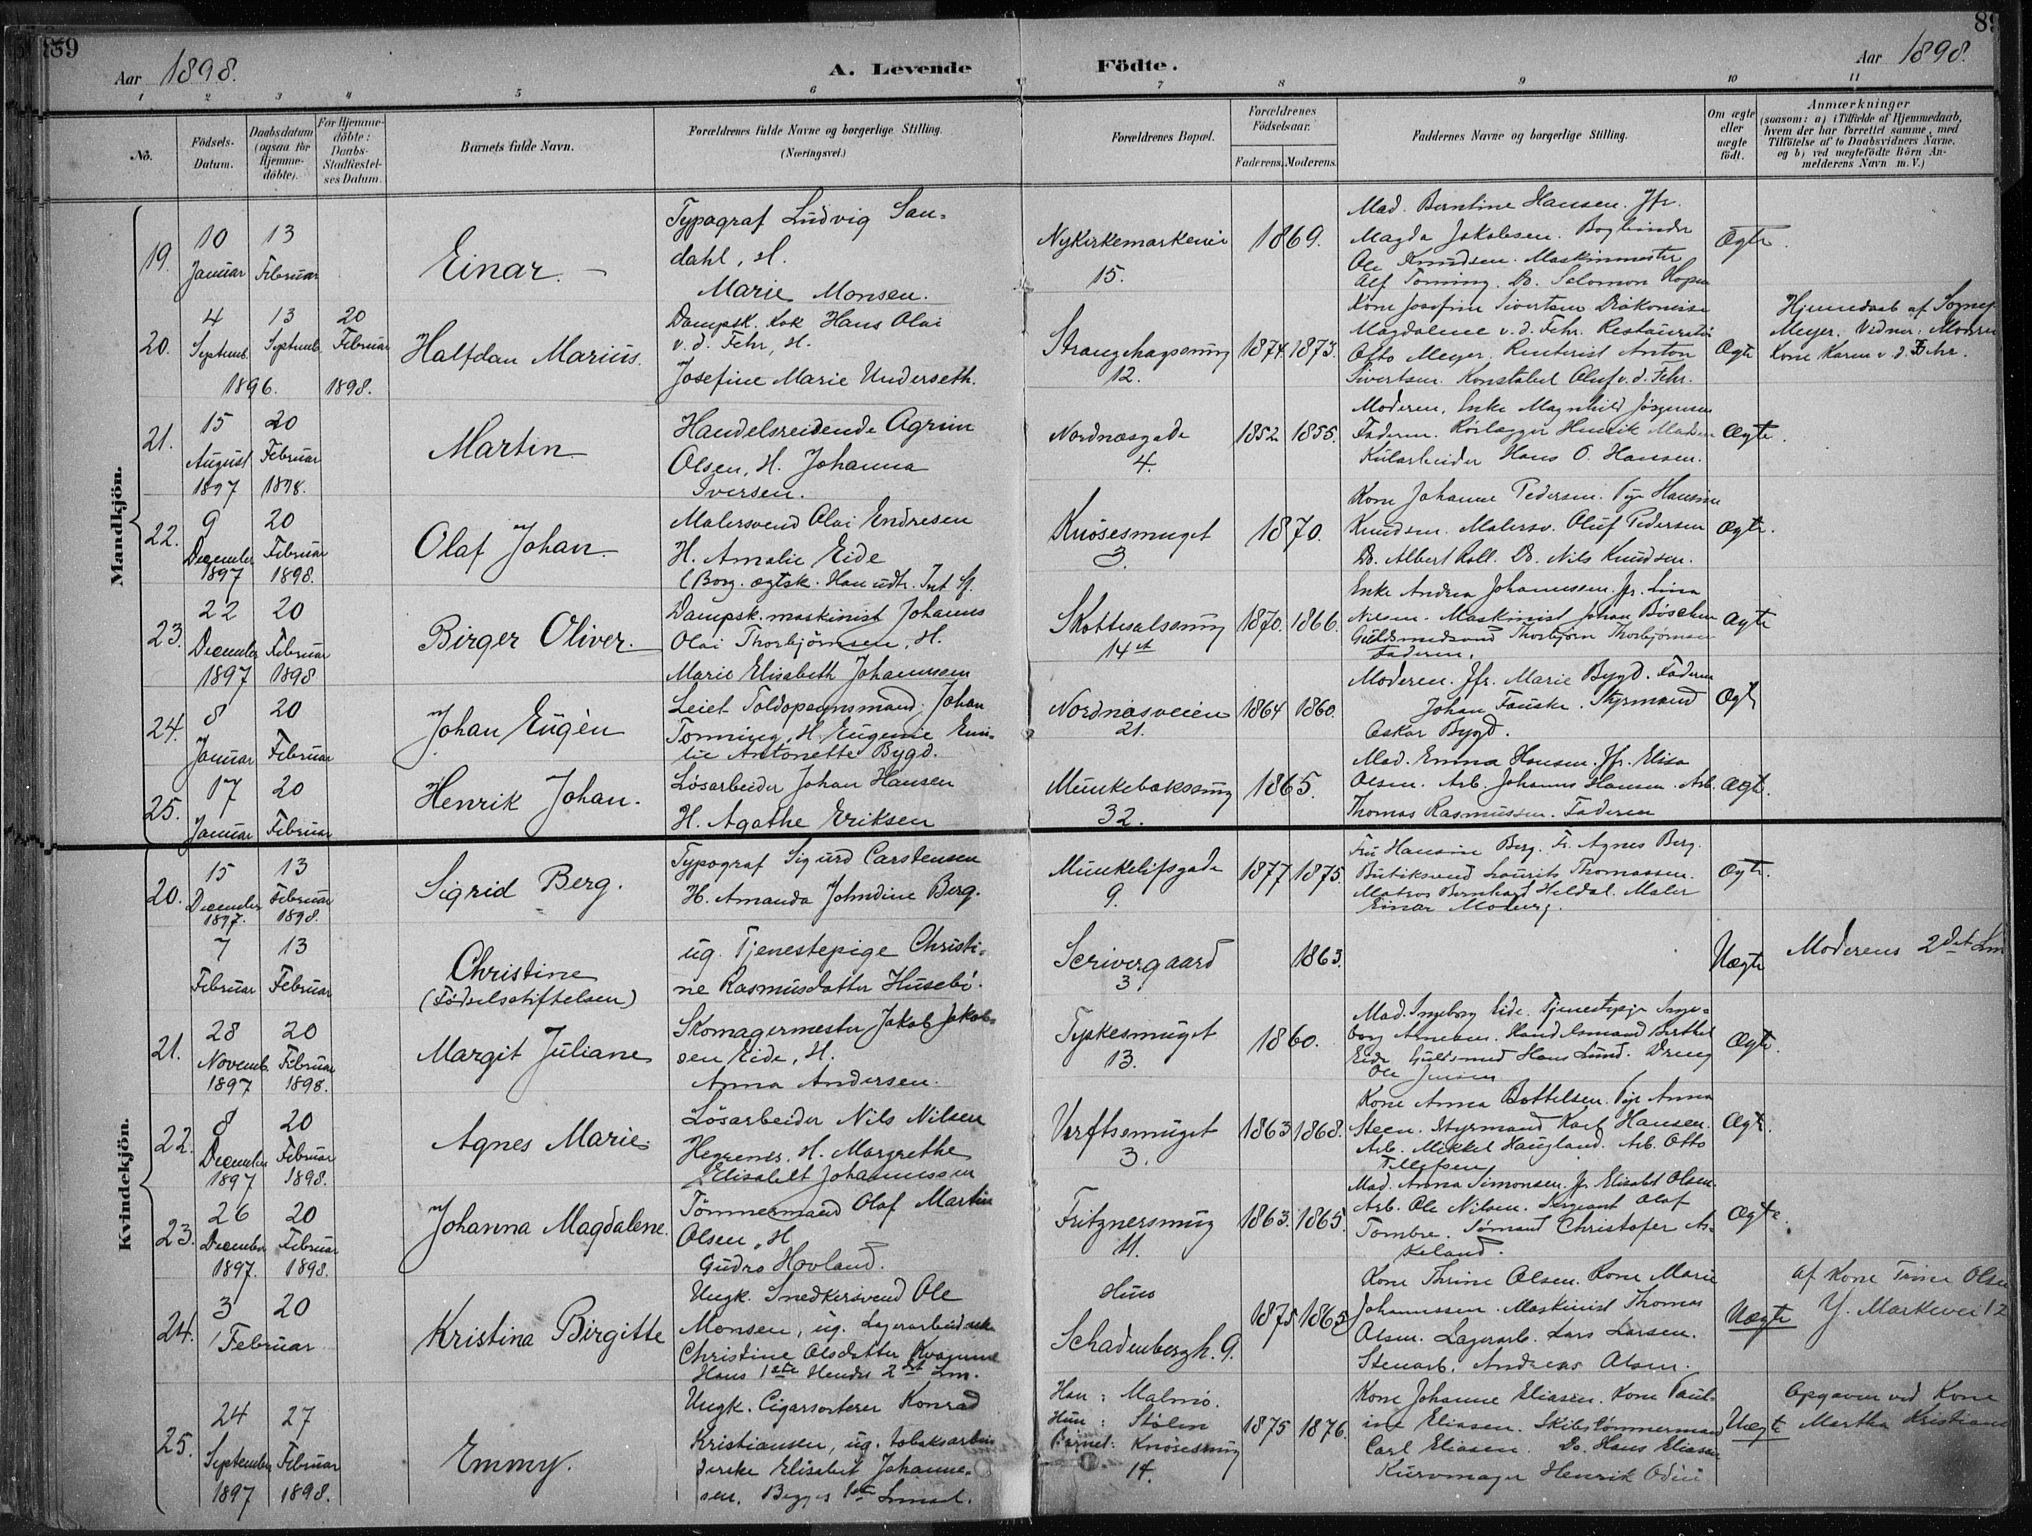 89
89
Aar 1898.
A. Levende
Födte.
Aar 1898.
1 2 3 4 5 6 7 8 9 10 11
No.
Födsels-
Datum.
Daabsdatum
(ogsaa for
Hjemme-
döbte).
For Hjemme-
döbte:
Daabs-
Stadfæstel-
ses Datum.
Barnets fulde Navn.
Forældrenes fulde Navne og borgerlige Stilling.
(Næringsvei.)
Forældrenes Bopæl.
Forældrenes
Födselsaar.
Faderens. Moderens.
Faddernes Navne og borgerlige Stilling.
Om ægte
eller
uægte
födt.
Anmærkninger
(saasom: a) i Tilfælde af Hjemmedaab,
hvem der har forrettet samme, med
Tilföielse af to Daabsvidners Navne,
og b) ved uægtefödte Börn An-
melderens Navn m. V.)
Mandkjön.
19.
10
Januar
13
Februar
Einar.
Typograf Ludvig San-
dahl, H.
Marie Monsen.
Nykirkemarkevei
15.
1869.
Mad. Berntine Hansen. Jfr.
Magda Jakobsen. Bogbinder
Ole Knudsen. Maskinmester
Alf Tonning. Do. Salomon
Ægte
20.
4
Septemb.
13
Septemb.
1896.
20
Februar
1898.
Halfdan Marius.
Dampsk. Kok Hans Olai
v. d. Fehr, H.
Josefine Marie Underseth.
Strangehagesmug
12.
1874. 1873.
Kone Josefine Sivertsen Diakonisse
Magdalene v. d. Fehr. Restauratør
Otto Meyer. Rentenist Anton
Sivertsen. Konstabel Oluf v. d. Fehr.
Ægte
Hjemmedaab af Sognep.
Meyer. Vidner: Moderen
Kone Karen v. d. Fehr.
21.
15
August
1897
20
Februar
1898.
Martin
Handelsreisende Agrim
Olsen, H. Johanna
Iversen.
Nordnæsgade
4.
1852 1855.
Moderen, Enke Magnhild Jörgensen
Faderen. Rørlægger Henrik Madsen
Kularbeider Hans O. Hansen.
Ægte.
22.
9
December
1897
20
Februar
1898.
Olaf Johan.
Malersvend Olai Endresen
H. Amalie Eide
(Borg. ægtsk. Han udtr.
Knøsesmuget
3.
1870.
Kone Johanne Pedersen. Pige Hansine
Knudsen. Malersv. Oluf Pedersen
Do. Albert Roll. Do. Nils Knudsen.
Ægte.
23.
22
December
1897
20
Februar
1898
Birger Oliver.
Dampsk.maskinist Johannes
Olai Thorbjørnsen, H.
Marie Elisabeth Johannessen
Skottesalsmug
14
1870. 1866.
Enke Andrea Johannessen. Jfr. Lina
Nilsen. Maskinist Johan Böschen
Guldsmedsvend Thorbjørn Thorbjørnsen
Faderen.
Ægte
24.
8
Januar
20
Februar
Johan Eugèn
Leiet Toldopsynsmand. Johan
Tonning, H. Eugenie Emi-
lie Antonette Bygd.
Nordnæsveien
21.
1864 1860.
Moderen. Jfr. Marie Bygd. Faderen
Johan Fauske. Styrmand
Oskar Bygd.
Ægte
25.
17
Januar
20
Februar
Henrik Johan.
Løsarbeider Johan Hansen
H. Agathe Eriksen
Munkebæksmug
32.
1865.
Mad. Emma Hansen. Jfr. Elisa
Olsen. Arb. Johannes Hansen. Arb.
Thomas Rasmussen. Faderen
Ægte.
Kvindekjön.
20.
15
December
1897.
13
Februar
1898.
Sigrid Berg.
Typograf Sigurd Carstensen
H. Amanda Johndine Berg.
Munkelifsgade
9.
1877 1875.
Fru Hansine Berg. Fr. Agnes Berg.
Butiksvend Laurits Thomassen.
Matros Bernhart Heldal. Maler
Einar Moberg.
Ægte.
7
Februar
13
Februar
Christine
(Fødselsstiftelsen)
ug. Tjenestepige Christi-
ne Rasmusdatter Husebö.
Scrivergaard
3.
1863.
Uægte
Moderens 2det Lm
21.
28
Novemb.
1897
20
Februar
1898.
Margit Juliane
Skomagermester Jakob Jakob-
sen Eide, H.
Anna Andersen.
Tyskesmuget
13.
1860.
Mad. Ingeborg Eide. Tjenestepige Inge-
borg Arnesen. Handelsmand Berthel
Eide Guldsmed Hans Lund. Dreng
Ole Jensen
Ægte.
22.
8
December
1897
20
Februar
1898.
Agnes Marie.
Løsarbeider Nils Nilsen
Hegrenes, H. Margrethe
Elisabet Johannessen
Verftsmuget
3.
1863 1868.
Kone Anna Bottelsen. Pige Anna
Steen. Styrmand Karl Hansen.
Arb. Mikkel Haugland. Arb. Otto
Tellefsen
Ægte.
23.
26
December
1897.
20
Februar
1898.
Johanna Magdalene.
Tömmermand Olaf Martin
Olsen, H
Gudro Hovland.
Fritznersmug
11.
1863. 1865.
Mad. Anna Simonsen. Jr. Elisabet Olsen.
Arb. Ole Nilsen. Sergeant Olaf
Tombre. Sømand Christofer As-
keland.
Ægte.
24.
3
Februar
20
Kristina Birgitte
Ungk. Snedkersvend Ole
Monsen, ug. Lagerarbeiderske
Christine Olsdatter Kvamme
Hans 1ste Hendes 2det Lm.
Hun
Schadenbergh. 9.
1875 1865
Kone Thrine Olsen. Kone Marie
Johannessen. Maskinist Thomas
Olsen. Lagerarb. Lars Larsen.
Stenarb. Andreas Olsen.
Uægte
af Kone Trine Olsen
Y. Markevei 12
25.
24
September
1897
27
Februar
1898.
Emmy.
Ungk. Cigarsorterer Konrad
Kristiansen, ug. tobaksarbei
derske Elisabet Johanne-
sen. Begges 1ste Lmaal.
Han: Malmö.
Hun: Stølen
Barnet: Knøsesmug
14.
1875 1876.
Kone Johanne Eliasen. Kone Paul-
ine Eliasen. Skibstømmermand
Carl Eliasen. Do. Hans Eliasen
Kurvmager Henrik
Uægte
Opgaven ved Kone
Martha Kristians